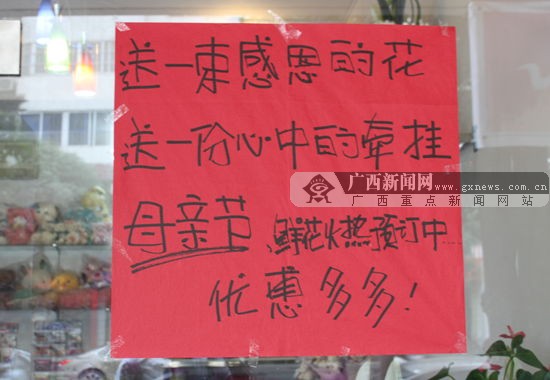 送一束感恩的花
送一份心中的牵挂
广西新闻网
www.gxnews.com.cn
广西重点新闻网站
母亲节 鲜花火热预订中……
优惠多多!